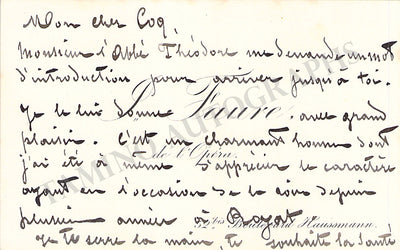 Mon cher Coq,
Monsieur l'Abbé Théodore me demande un mot
d'introduction pour arriver jusqu'à toi.
Je le lui donne avec grand
J. Faure
plaisir. C'est un charmant homme dont
de l'Opéra.
j'ai été à même d'apprécier le caractère
ayant eu l'occasion de le voir depuis
plusieurs années à Royat
52bis Boulevard Haussmann.
Je te serre la main, te souhaite la santé
TAMINO AUTOGRAPHS